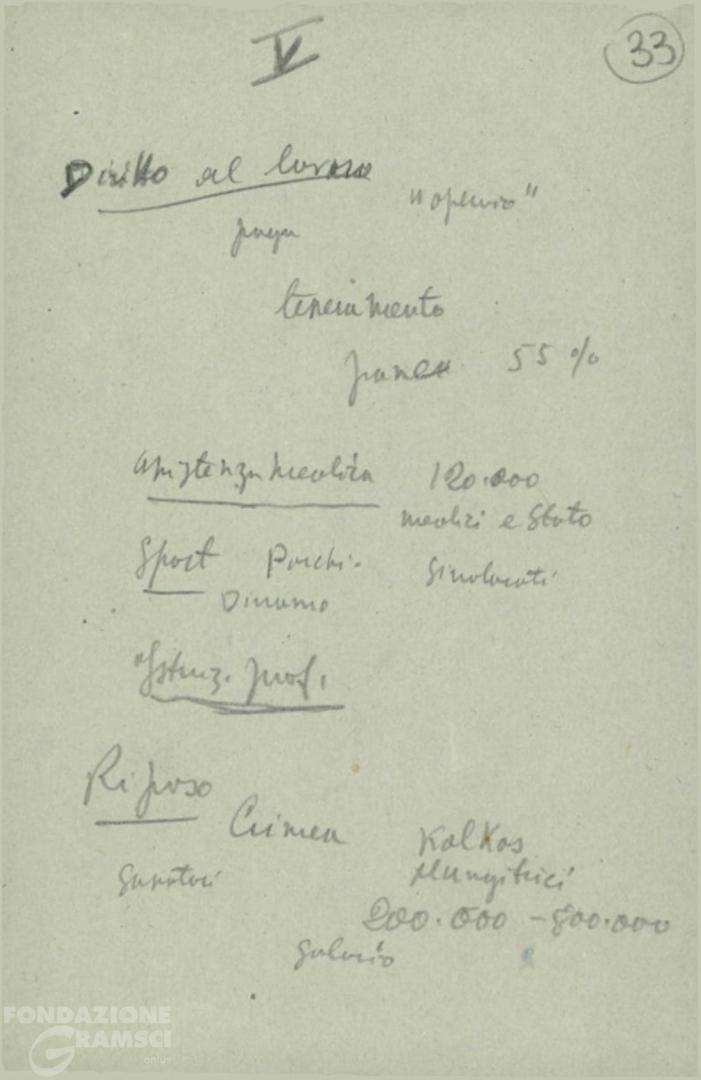 V
33
Diritto al lavoro
"operaio"
paga
tesseramento
pane 55 %
assistenza medica 120.000
medici e Stato
Sport Parchi. Sindacati
Dinamo
Istruz. prof.
Riposo
Crimea Kolkos
Sanatori Mungitrici
200.000 - 800.000
Salario
FONDAZIONE
GRAMSCI
onlus